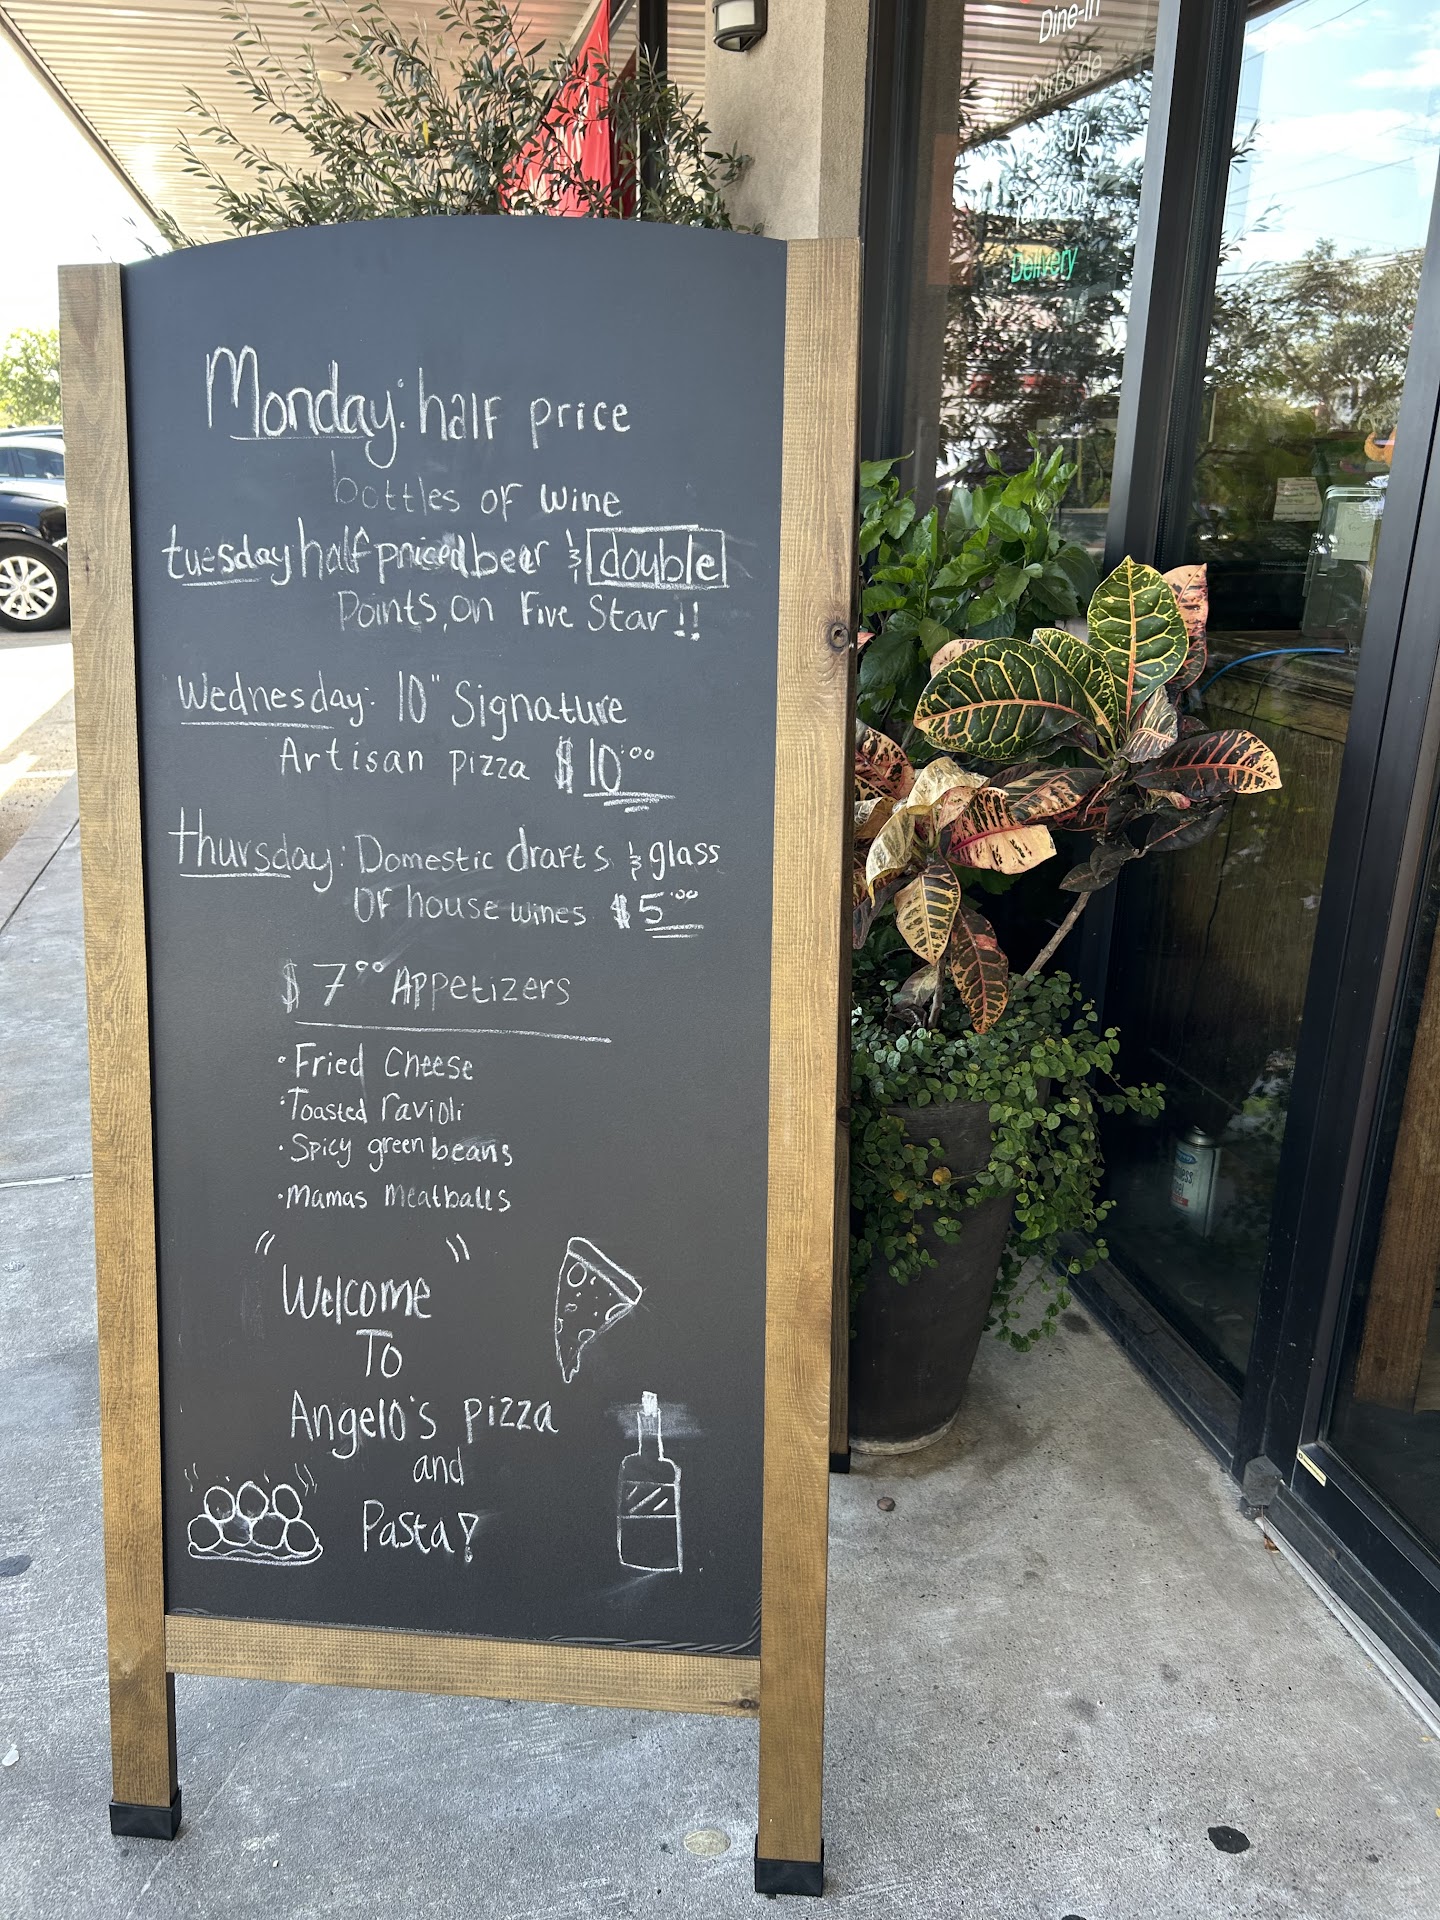 Monday: half price
bottles of wine
tuesday half priced beer & double
Points, on Five Star!!
Wednesday: 10" Signature
Artisan pizza $10.00
thursday: Domestic drafts & glass
of house wines $5.00
$7.00 Appetizers
• Fried Cheese
• Toasted ravioli
• Spicy green beans
• Mamas meatballs
"Welcome"
To
Angelo's pizza
and
Pasta!
Dine-In
Curbside
Up
Delivery